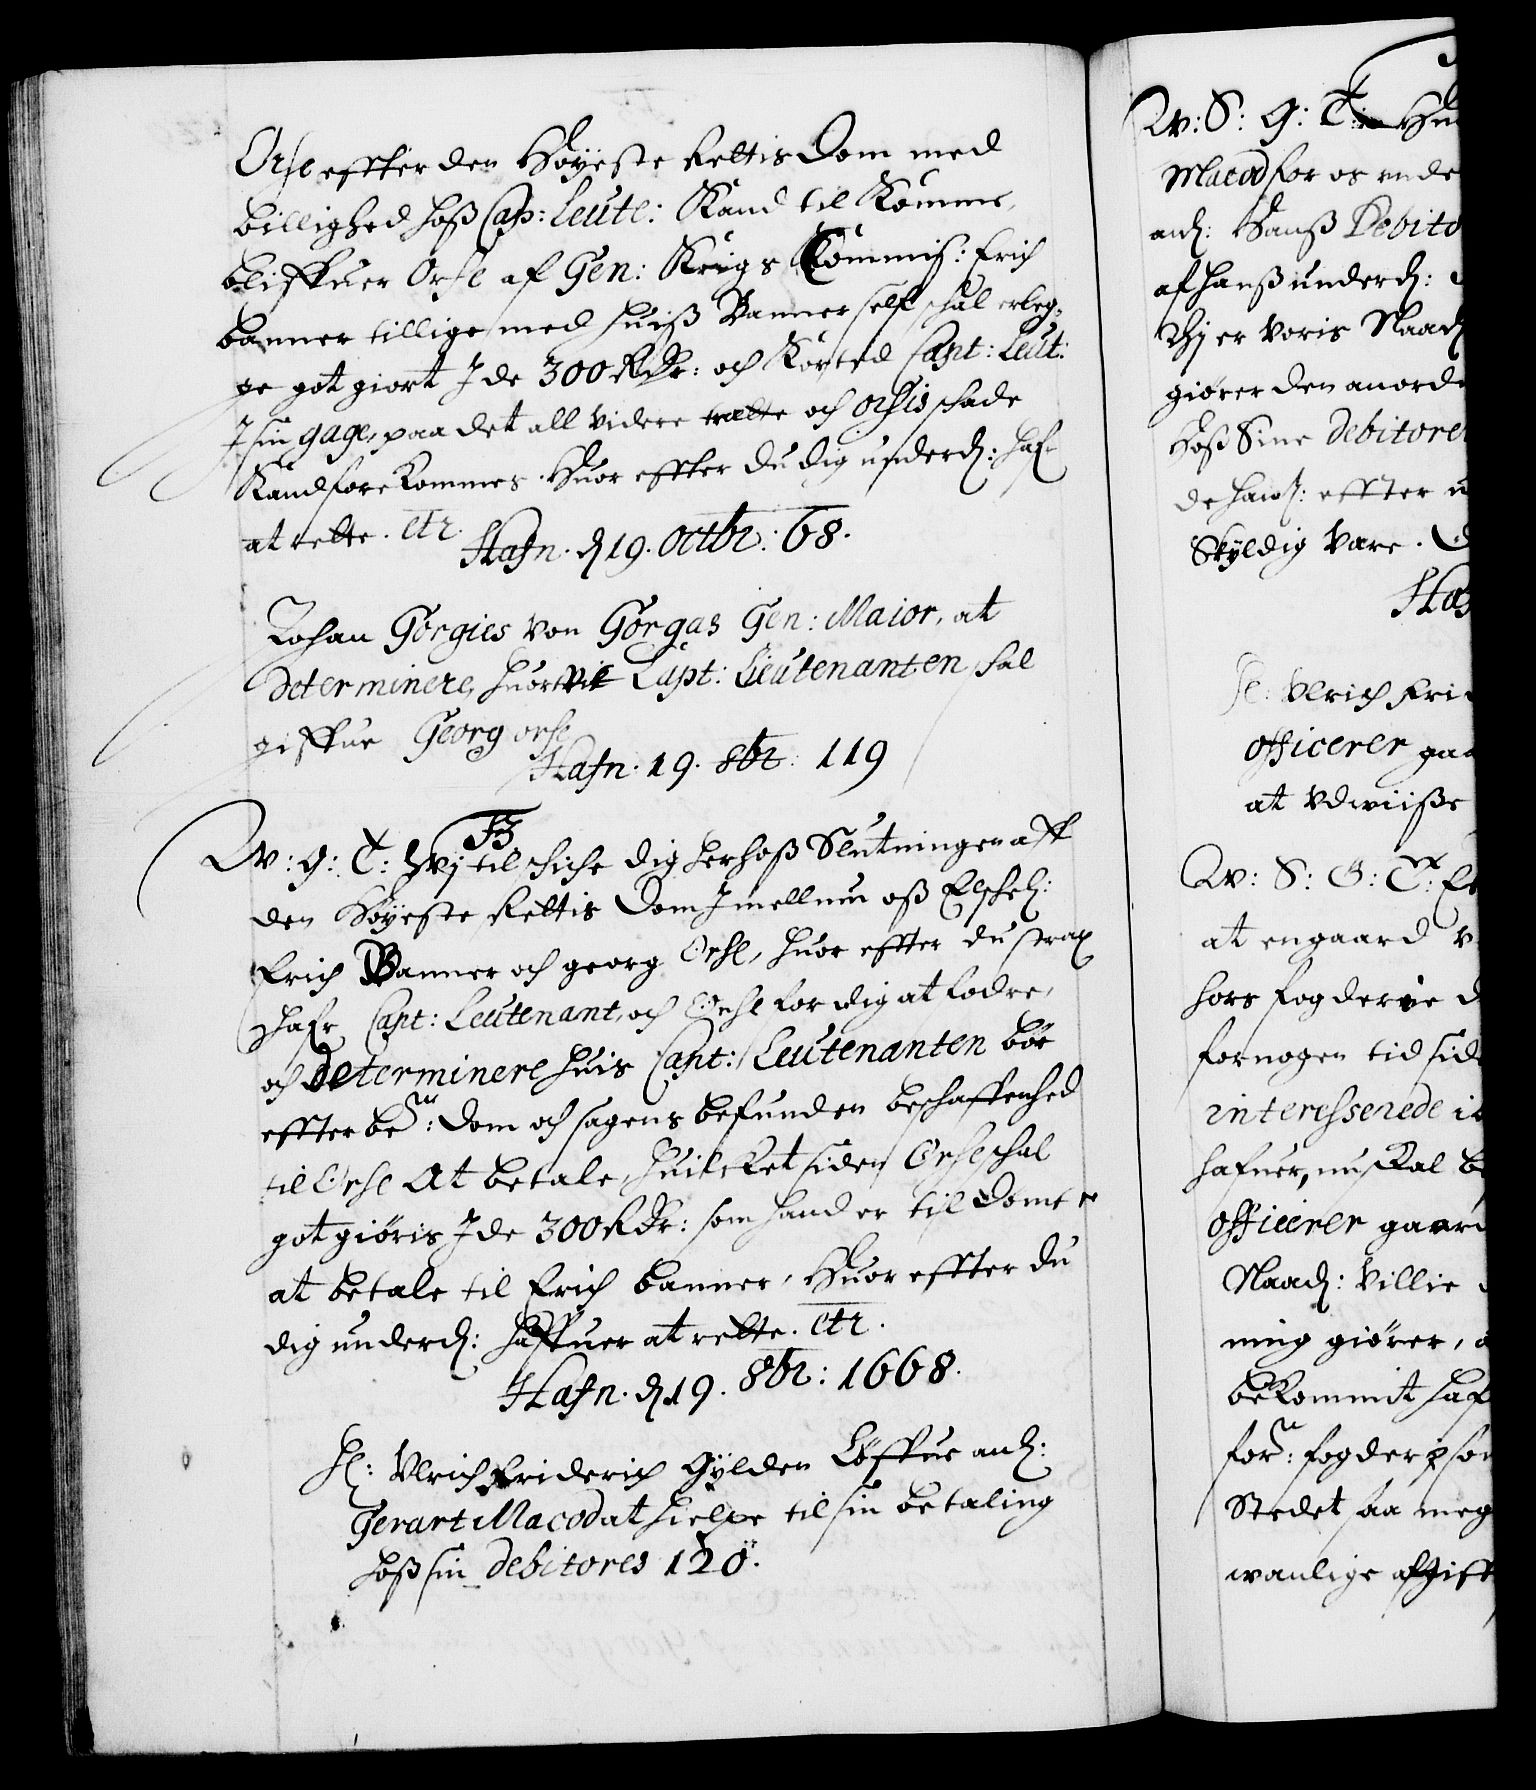 Orse effter den Høyeste Rettis Dom med
billighed hoß Cap: Leutl: Kand til Komme,
bliffuer Orse af Gen: Krigs Kommis: Erich
banner tillige med huiß Banner self schal erleg-
ge got giort I de 300 Rdr: och Korted Capt: Leut:
I sin gage, paa det all videre trætte och schade
Kand forekommes. Huor effter du dig underd: hafr
at rette. etc.
Hafn. d 19. Octbr: 68.
Johan Görgies von Görgas Gen: Maior, at
determinere, huorvit Capt: Lieutenanten sal
giffue Georg orse
Hafn. 19. 8br: 119
F3
W: G: T: Wj tilschiche dig herhoß Slutningen aff
den Høyeste Rettis Dom Imellum oß Elschel:
Erich Banner och georg Orse, huor effter du strax
hafr Capt: Leutenant, och Orse for dig at fodre,
och Determinere huis Capt: Leutenanten bör
effter be:te Dom och sagens befunden beschaffenhed
til Orse At betale, huilcket siden Orse schal
got giöris I de 300 Rdr: som hand er til Dömt
at betale til Erich banner, Huor effter du
dig underd: haffuer at rette. etc.
Hafn. d 19. 8br: 1668.
Hl: Ulrich Friderich Gylden Löffue anl:
Gerart Macod at hielpe til sin betaling
hoß sin debitores 120.
W: S: G: T:
Macod for os unde
anl: Hanß Debito
af hanß underd:
Thj er Voris Naad
giörer den anorde
Hoß Sine debitore
de haw: effter
Skyldig Være.
Haf
Hl: Ulrich Fri
officerer gaa
at Udwiiße
W: S: G: T:
at en gaard
hors fogderie
for nogen tid sid
interesserede
hafuer, nu skal be
officerer gaard
Naad: Villie
ning giörer,
bekommit haf
for:ne fogderj som
Stedet saa meg
wanlige afgift